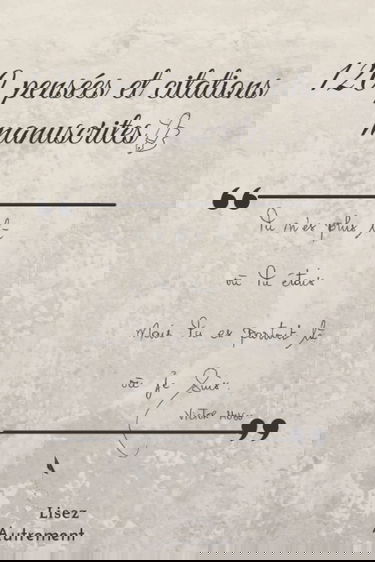 pensées et citations
manuscrites
“
Tu n'es plus, là
où tu étais
Mais tu es partout, là
où je suis..
”
Lisez-
Autrement